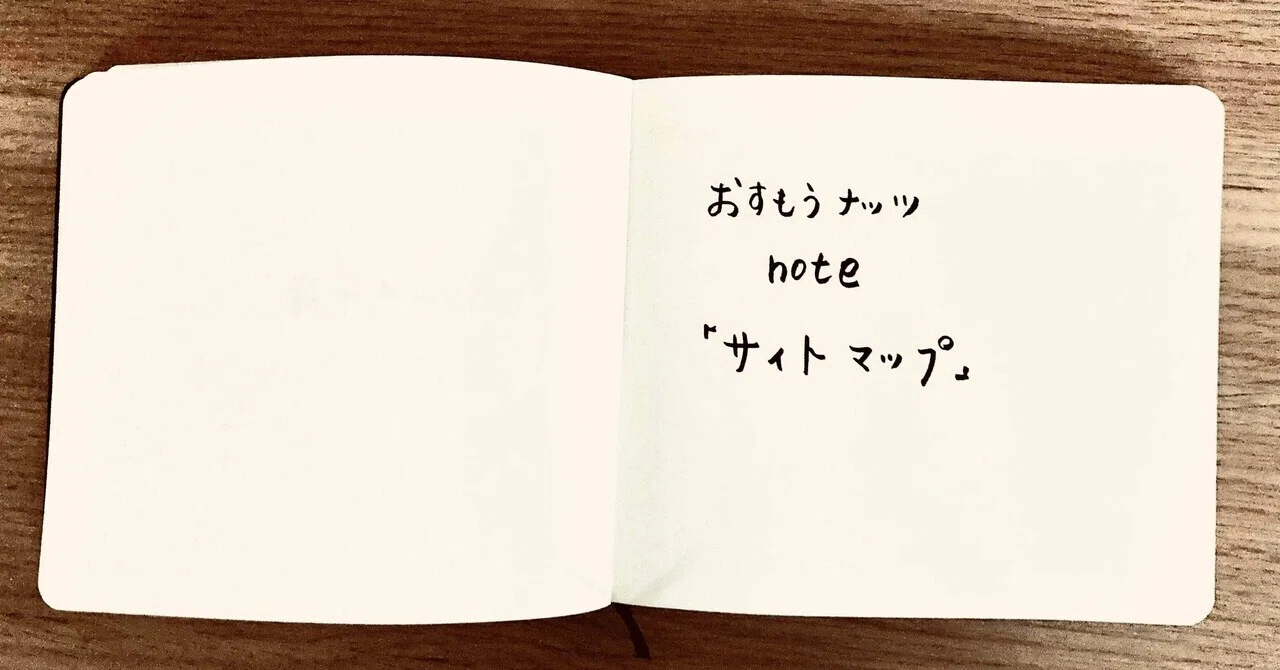 おすもうナッツ
note
「サイトマップ」